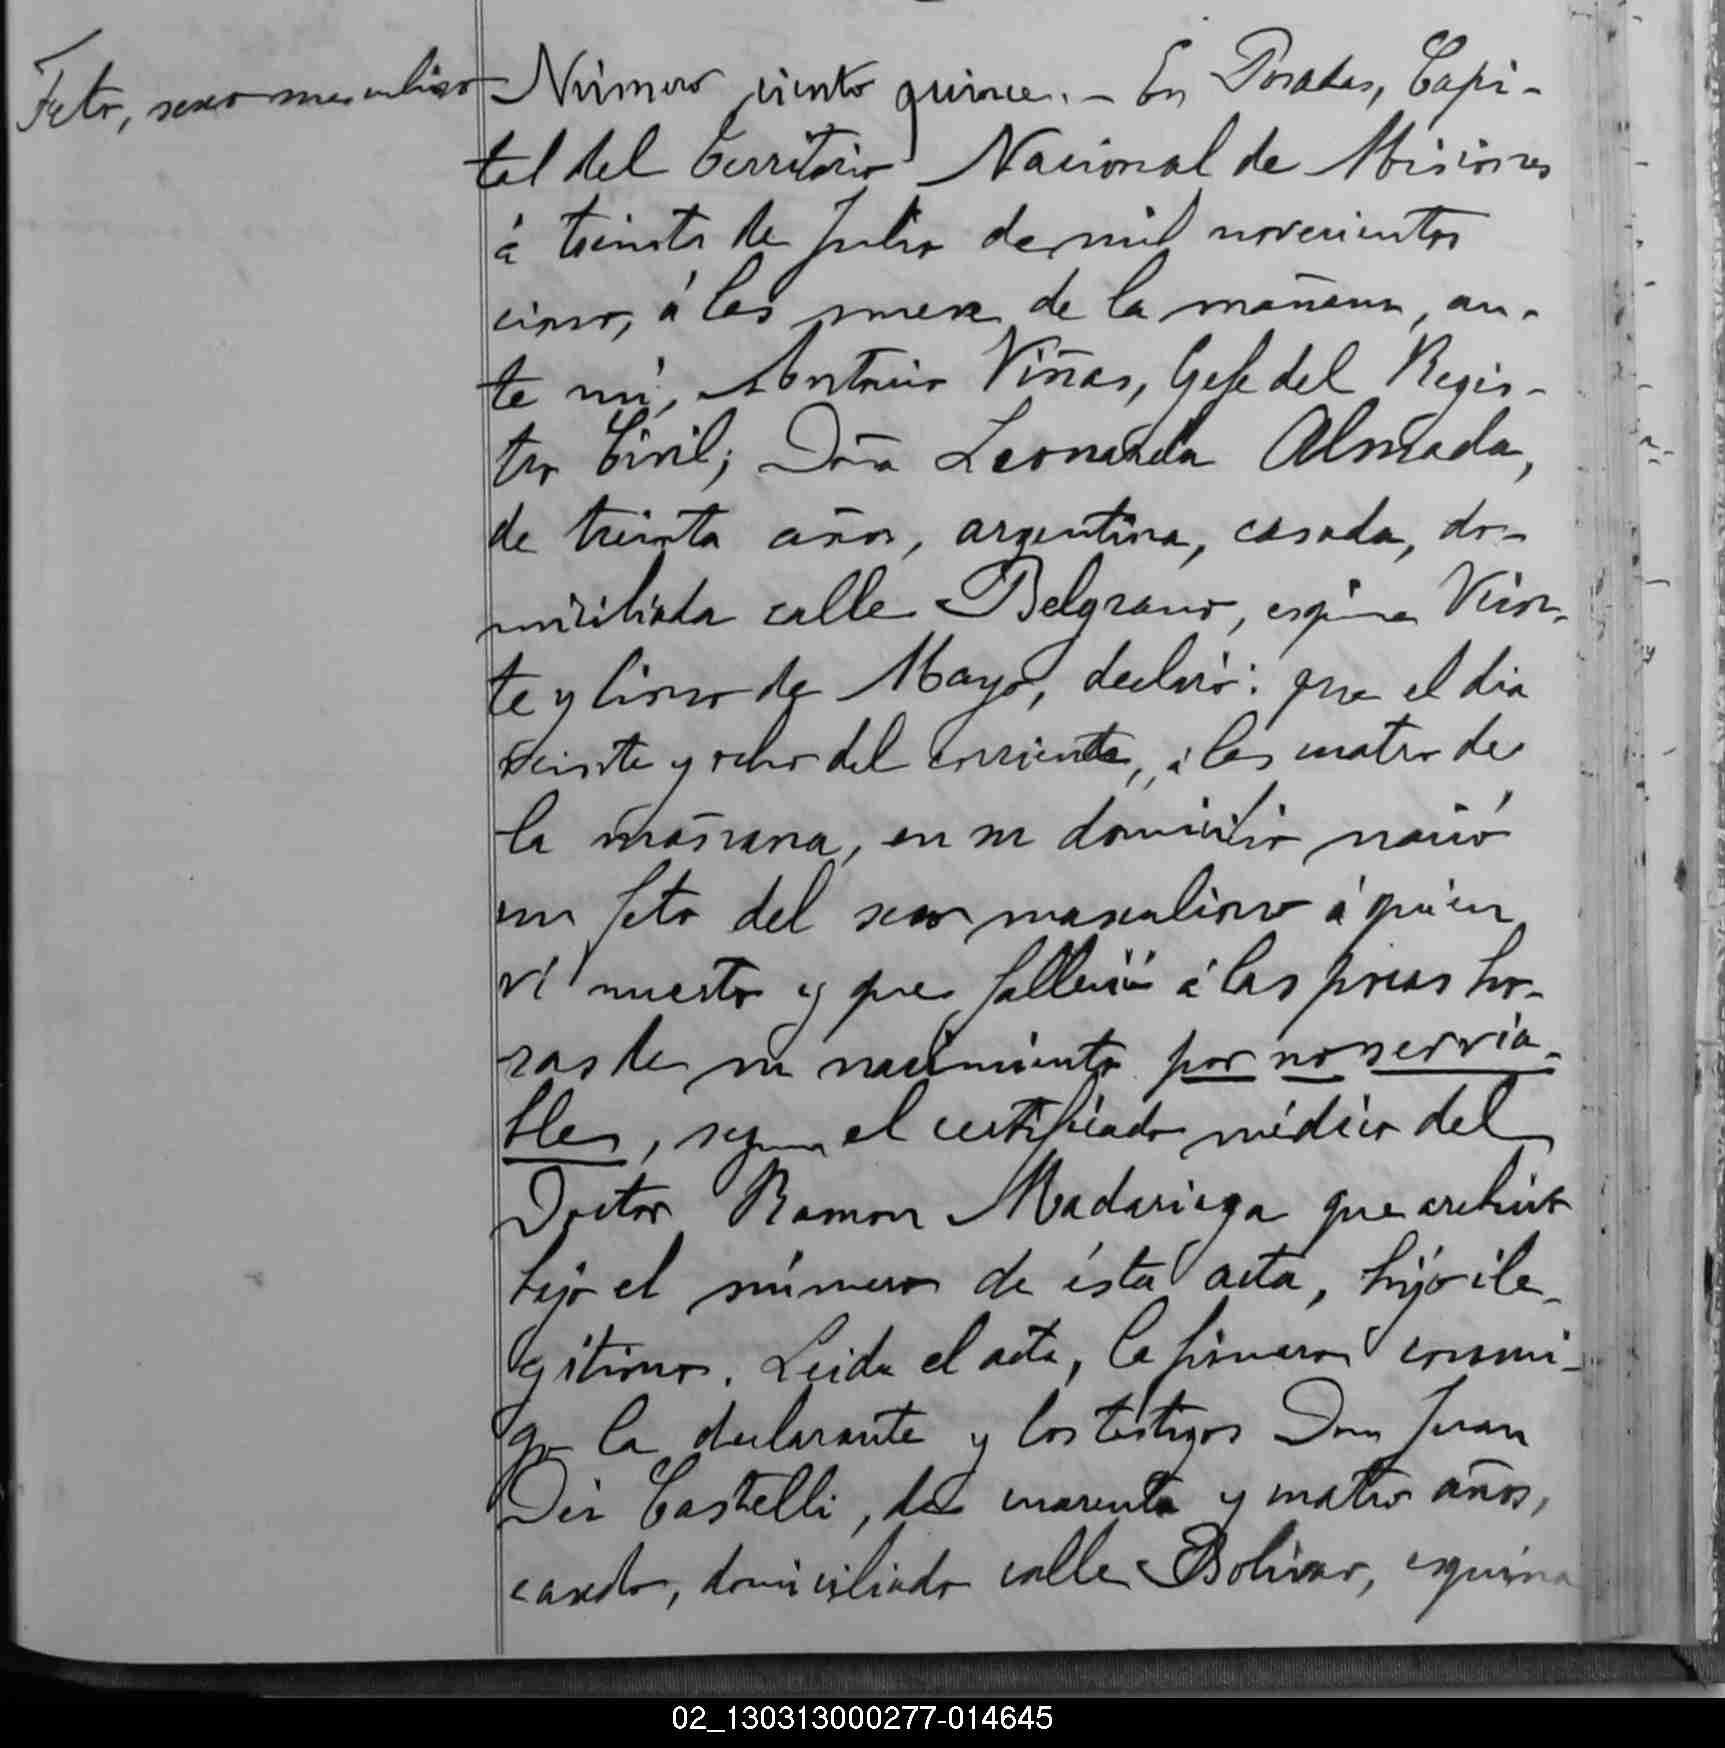 Feto, sexo masculino
Número ciento quince. - En Posadas, Capi-
tal del Territorio Nacional de Misiones
á treinta de Julio de mil novecientos
cinco, á las nueve de la mañana, an-
te mí, Antonio Viñas, Gefe del Regis-
tro Civil; Doña Leonarda Almada,
de treinta años, argentina, casada, do-
miciliada calle Belgrano, esquina Vein-
te y Cinco de Mayo, declaró: que el dia
veinte y ocho del corriente, á las cuatro de
la mañana, en su domicilio nació
un feto del sexo masculino á quien
ví muerto y que falleció á las pocas ho-
ras de su nacimiento por no ser via-
bles, segun el certificado médico del
Doctor Ramon Madariaga que archivo
bajo el número de ésta acta, hijo ile-
gítimo. Leida el acta, la firmaron conmi-
go la declarante y los testigos Don Juan
Castelli, de cuarenta y cuatro años,
casado, domiciliado calle Bolivar, esquina
02_130313000277-014645